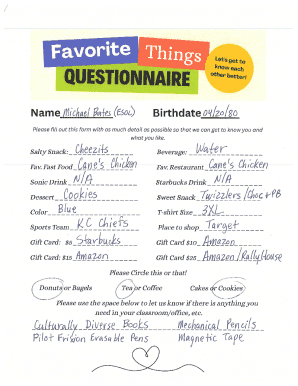 Favorite Things
Let's get to
know each
other better!
QUESTIONNAIRE
Name Michael Bates (ESOL) Birthdate 04/20/80
Please fill out this form with as much detail as possible so that we can get to know you and
what you like.
Salty Snack: Cheezits Beverage: Water
Fav. Fast Food Cane's Chicken Fav. Restaurant Cane's Chicken
Sonic Drink N/A Starbucks Drink N/A
Dessert Cookies Sweet Snack Twizzlers/Choc+PB
Color Blue T-shirt Size 3XL
Sports Team KC Chiefs Place to shop Target
Gift Card: $5 Starbucks Gift Card $10 Amazon
Gift Card: $15 Amazon Gift Card $25 Amazon/Rally House
Please Circle this or that!
Donuts or Bagels Tea or Coffee Cakes or Cookies
Please use the space below to let us know if there is anything you
need in your classroom/office, etc.
Culturally Diverse Books Mechanical Pencils
Pilot Frixion Erasable Pens Magnetic Tape